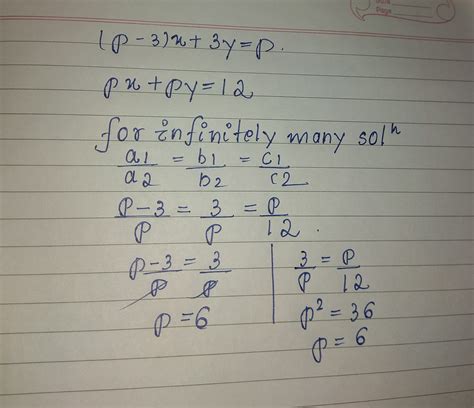 Date
Page
(p-3)x+3y=p.
px+py=12
for infinitely many solⁿ
a1/a2 = b1/b2 = c1/c2
p-3/p = 3/p = p/12.
p-3/p = 3/p
p=6
3/p = p/12
p² = 36
p = 6